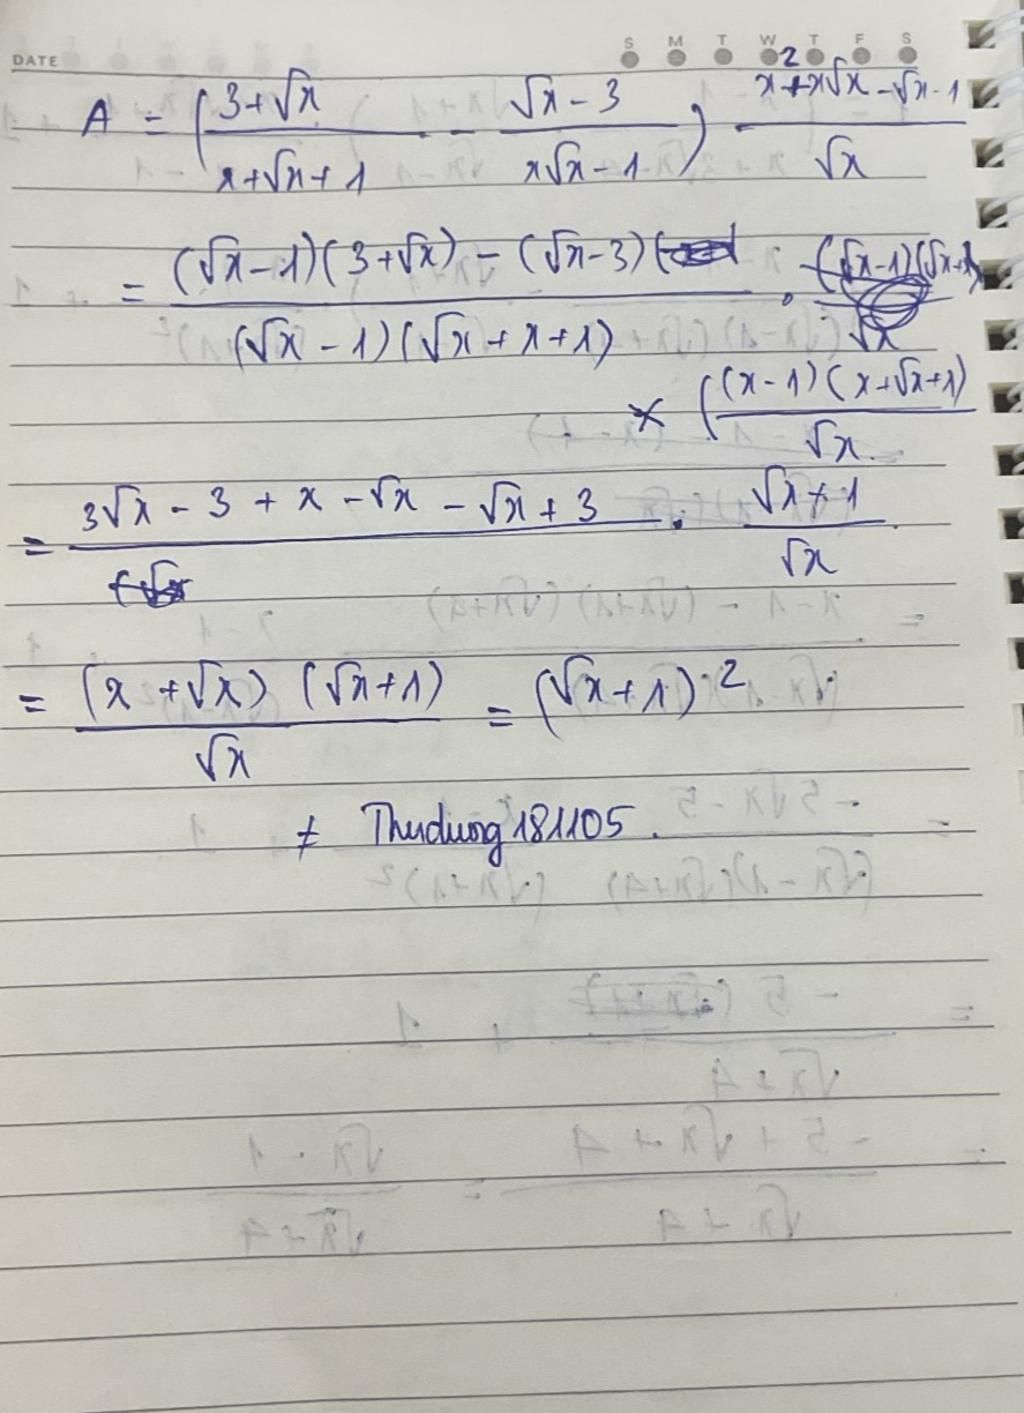 DATE S M T W T F S
A = ( (3+√x)/(x+√x+1) - (√x-3)/(x√x-1) ) (x²+x√x-√x-1)/√x
= ((√x-1)(3+√x) - (√x-3))/((√x-1)(√x+x+1)) · ((√x-1)(√x+1))/√x
× ( ((x-1)(x+√x+1))/√x
= (3√x - 3 + x - √x - √x + 3) · (√x+1)/√x
= ((x+√x) (√x+1))/√x = (√x+1)²
≠ Thudung181105.